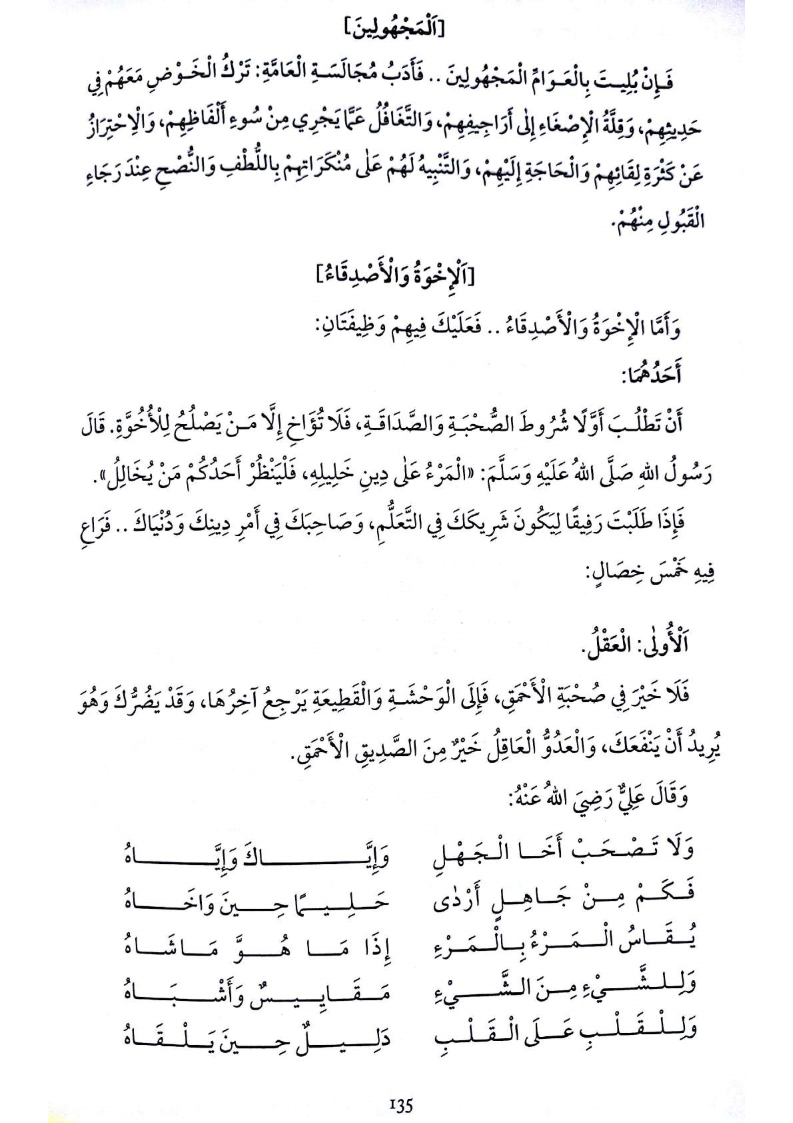 [اَلْمَجْهُولِينَ]
فَإِنْ بُلِيتَ بِالْعَوَامِّ الْمَجْهُولِينَ .. فَأَدَبُ مُجَالَسَةِ الْعَامَّةِ: تَرْكُ الْخَوْضِ مَعَهُمْ فِي
حَدِيثِهِمْ، وَقِلَّةُ الْإِصْغَاءِ إِلَى أَرَاجِيفِهِمْ، وَالتَّغَافُلُ عَمَّا يَجْرِي مِنْ سُوءِ أَلْفَاظِهِمْ، وَالْاِحْتِرَازُ
عَنْ كَثْرَةِ لِقَائِهِمْ وَالْحَاجَةِ إِلَيْهِمْ، وَالتَّنْبِيهُ لَهُمْ عَلَى مُنْكَرَاتِهِمْ بِاللُّطْفِ وَالنُّصْحِ عِنْدَ رَجَاءِ
الْقَبُولِ مِنْهُمْ.
[اَلْإِخْوَةُ وَالْأَصْدِقَاءُ]
وَأَمَّا الْإِخْوَةُ وَالْأَصْدِقَاءُ .. فَعَلَيْكَ فِيهِمْ وَظِيفَتَانِ:
أَحَدُهُمَا:
أَنْ تَطْلُبَ أَوَّلًا شُرُوطَ الصُّحْبَةِ وَالصَّدَاقَةِ، فَلَا تُؤَاخِ إِلَّا مَنْ يَصْلُحُ لِلْأُخُوَّةِ. قَالَ
رَسُولُ اللهِ صَلَّى اللهُ عَلَيْهِ وَسَلَّمَ: «الْمَرْءُ عَلَى دِينِ خَلِيلِهِ، فَلْيَنْظُرْ أَحَدُكُمْ مَنْ يُخَالِلُ».
فَإِذَا طَلَبْتَ رَفِيقًا لِيَكُونَ شَرِيكَكَ فِي التَّعَلُّمِ، وَصَاحِبَكَ فِي أَمْرِ دِينِكَ وَدُنْيَاكَ .. فَرَاعِ
فِيهِ خَمْسَ خِصَالٍ:
اَلْأُولَى: الْعَقْلُ.
فَلَا خَيْرَ فِي صُحْبَةِ الْأَحْمَقِ، فَإِلَى الْوَحْشَةِ وَالْقَطِيعَةِ يَرْجِعُ آخِرُهَا، وَقَدْ يَضُرُّكَ وَهُوَ
يُرِيدُ أَنْ يَنْفَعَكَ، وَالْعَدُوُّ الْعَاقِلُ خَيْرٌ مِنَ الصَّدِيقِ الْأَحْمَقِ.
وَقَالَ عَلِيٌّ رَضِيَ اللهُ عَنْهُ:
وَلَا تَصْحَبْ أَخَا الْجَهْلِ وَإِيَّاكَ وَإِيَّاهُ
فَكَمْ مِنْ جَاهِلٍ أَرْدَى حَلِيمًا حِينَ وَاخَاهُ
يُقَاسُ الْمَرْءُ بِالْمَرْءِ إِذَا مَا هُوَّ مَاشَاهُ
وَلِلشَّيْءِ مِنَ الشَّيْءِ مَقَايِيسٌ وَأَشْبَاهُ
وَلِلْقَلْبِ عَلَى الْقَلْبِ دَلِيلٌ حِينَ يَلْقَاهُ
135